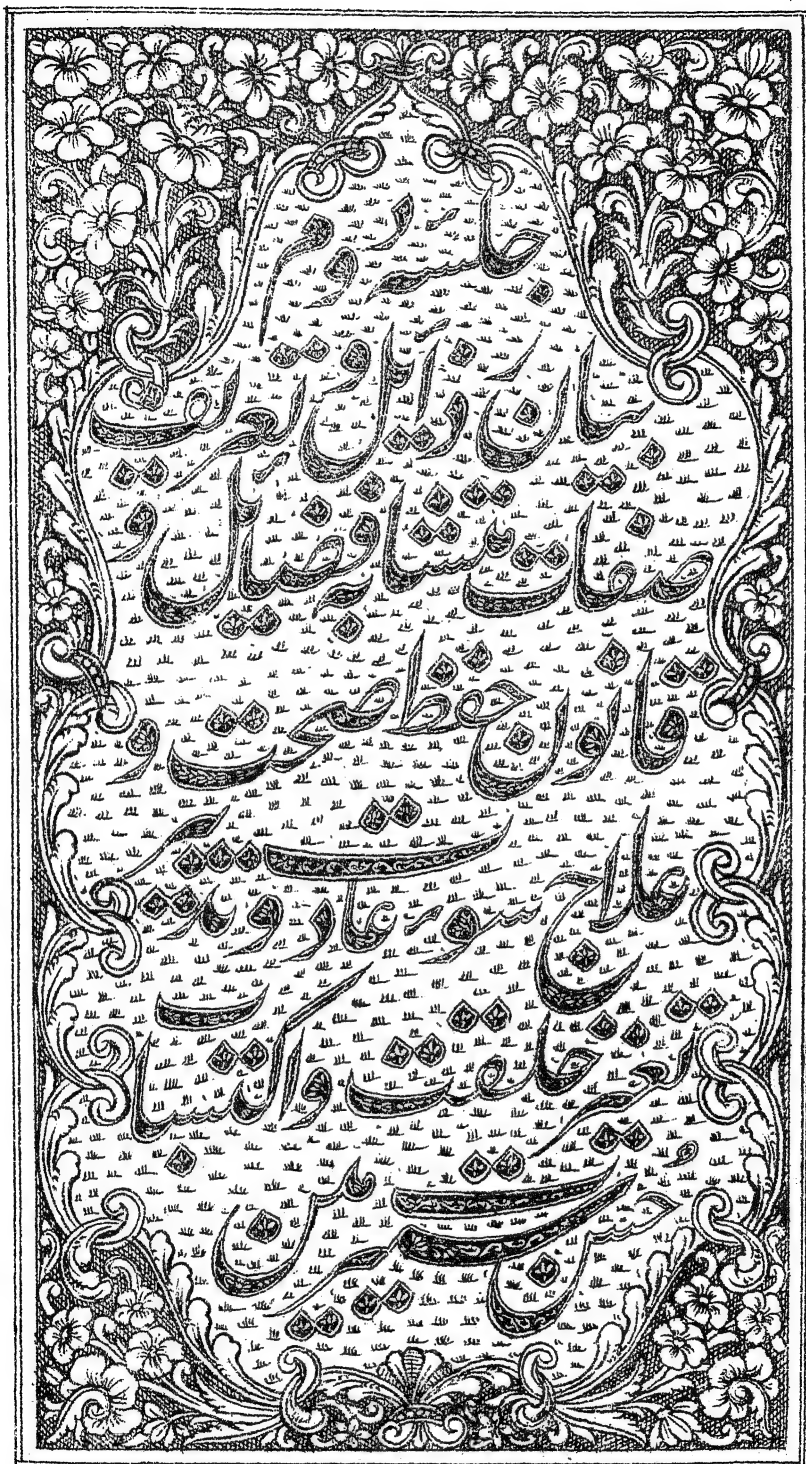 جلسہ دوم
بیان رذایل و تعریف
صفات متشابہ فضایل و
قانون حفظ صحت و
علاج سوء عادت و تدبیر
تغیر خلقت و اکتساب
حسن سیرت میں